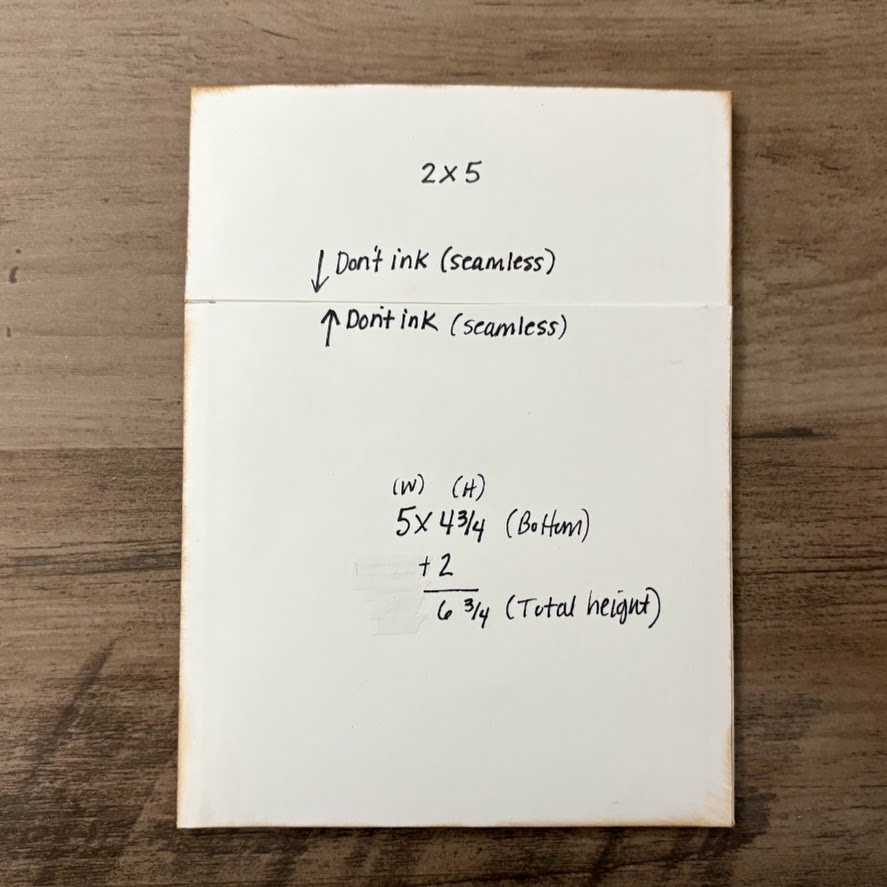 2 x 5
↓ Don't ink (seamless)
↑ Don't ink (seamless)
(W) (H)
5 x 4 3/4 (Bottom)
+ 2
6 3/4 (Total height)